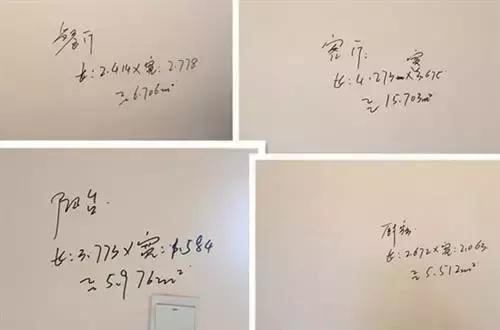 餐厅
长:2.414×宽:2.778
≈6.706m²
客厅:
宽
长:4.273m×3.675
≈15.703m²
阳台
长:3.773×宽:1.584
≈5.976m²
厨房
长:2.672×宽:2.063
≈5.512m²